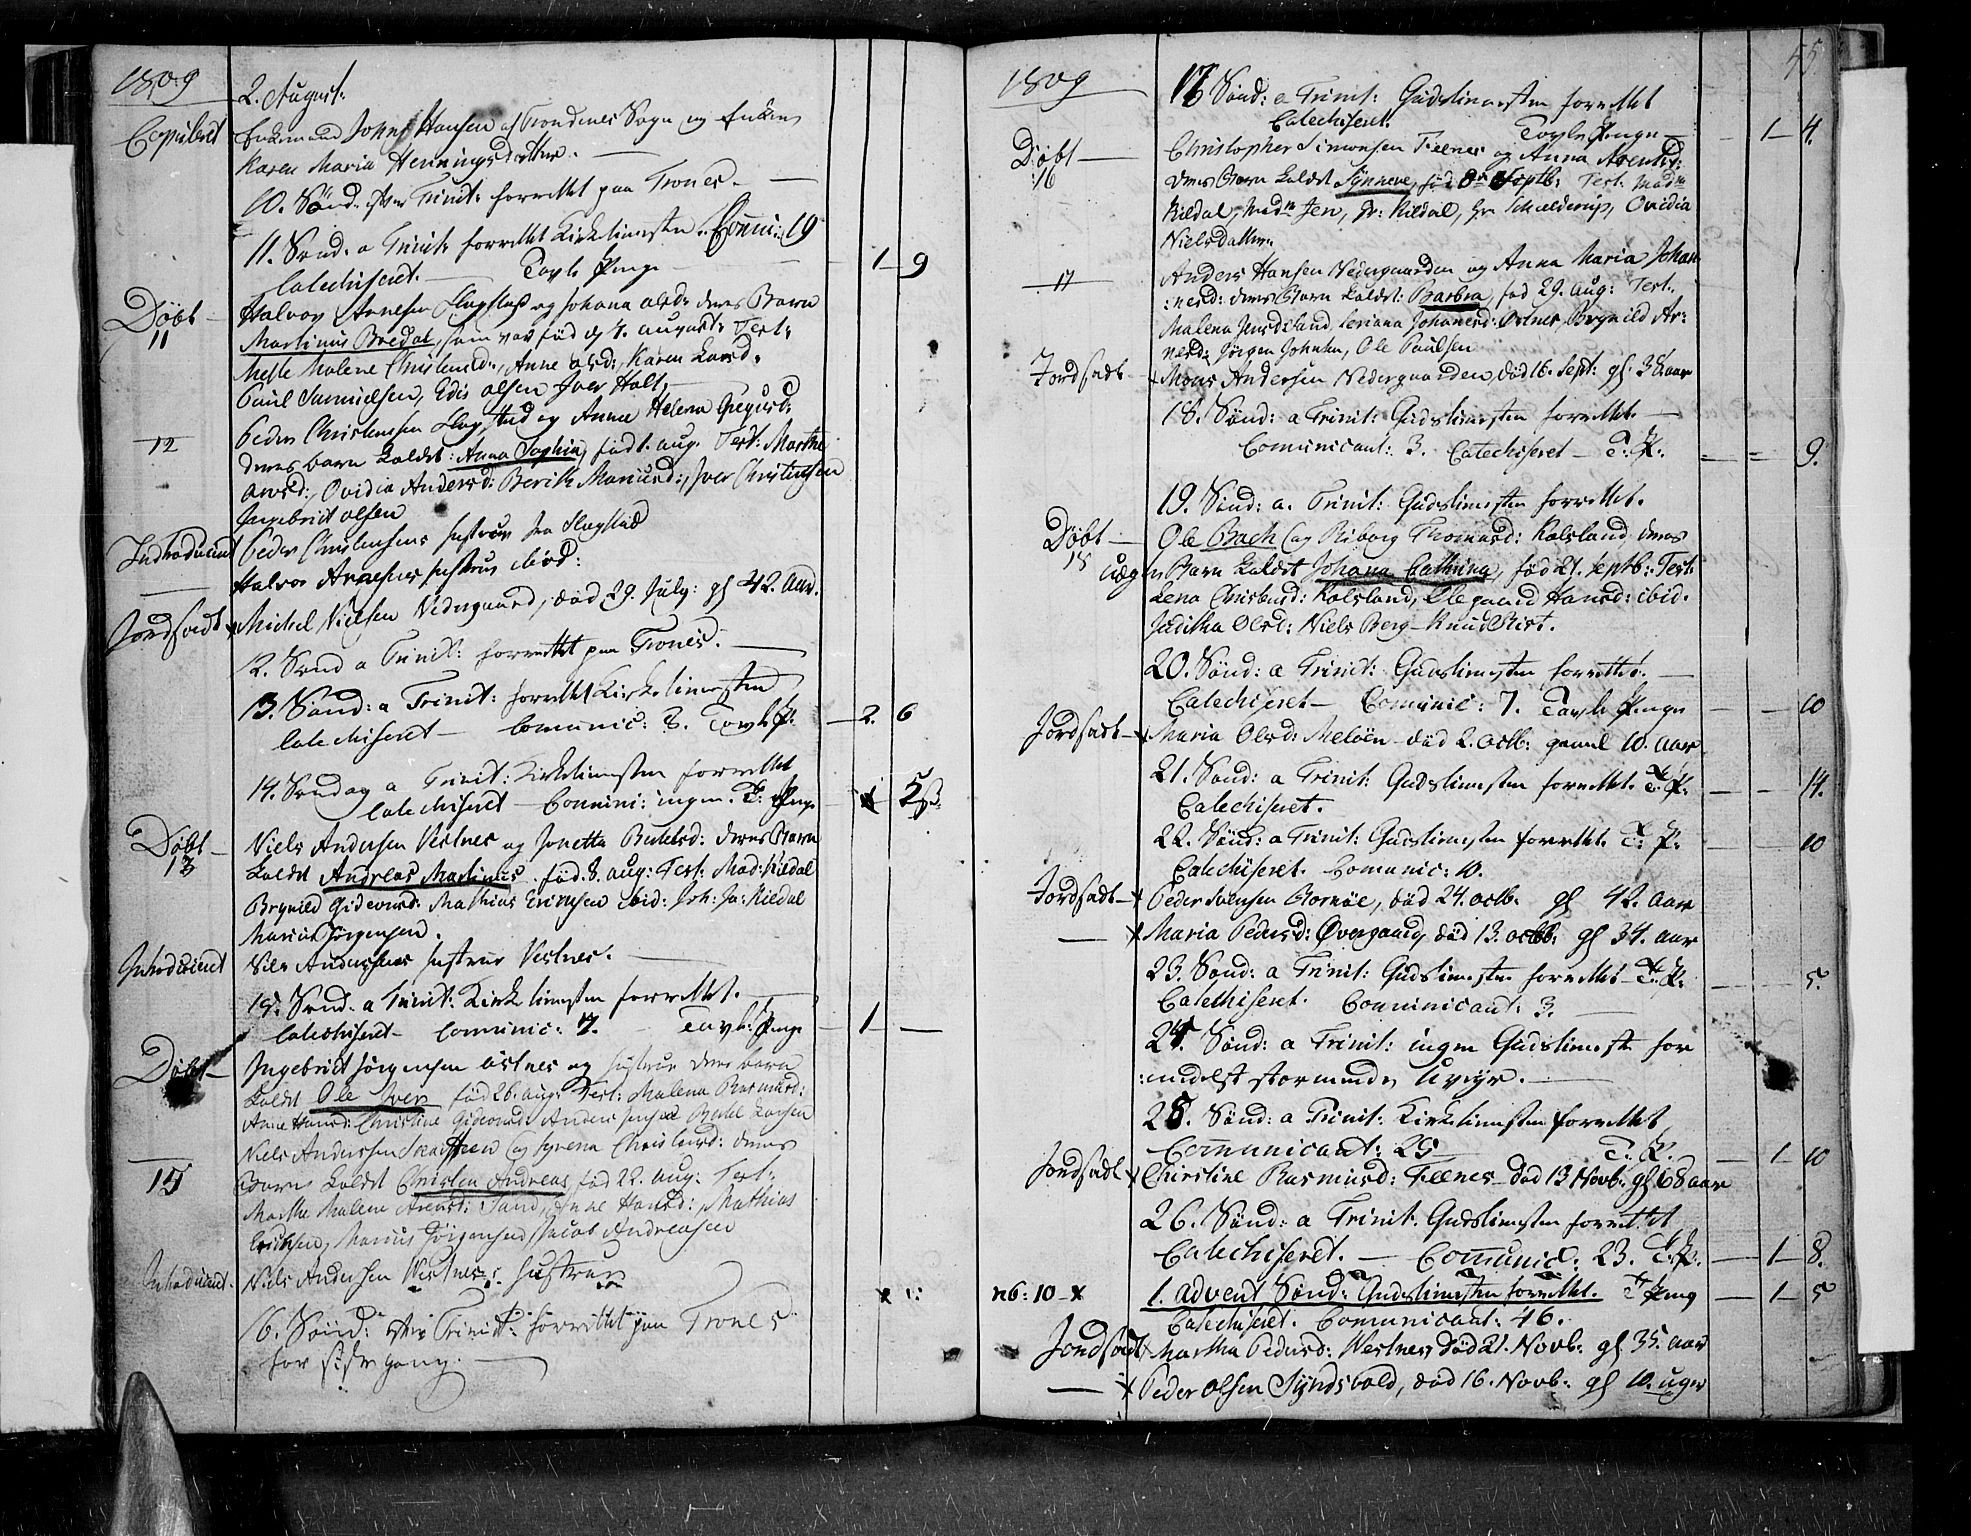 1809
2. August.
Copuleret Enkemand Johns Hansen af Trondenes Sogn og Enken
Karen Maria Henningsdatter.
10. Sönd: efter Trinit: forrettet paa Trones.
11. Sönd: a Trinit: forrettet Kirketienesten. Commu: 19
Catechiseret. Tavle Penge 1 9
Döbt Halvor Arnesen Slagstad og Johana olsd: deres Barn
11 Martinus Bredal, som var föd d 7. august. Test:
Malene Christensd:, Anne olsd:, Karen Larsd.
Paul Samuelsen, Edis olsen Iver Holt.
12 Peder Christensen Slagstad og Anne Helena Gregusd:
deres barn kaldet: Anna Sophia, föd 1. aug. Test: Marthe
Arnsd:, Ovidia Andersd: Berith Mariusd:, Iver Christensen
Ingebrict olsen
Introduceret Peder Christensens hustrue fra Slagstad
Halvor Arnesens hustrue ibid:
Jordfæstet Michel Nielsen Nedergaard, död 29. July: gl 42. Aar.
12. Sönd a Trinit: forrettet paa Trones.
13. Sönd: a Trinit: forrettet Kirketienesten
Catechiseret Comunic: 8. Tavle P. 2. 6
14. Sondag a Trinit: Kirketienesten forrettet
Catechiseret Commini: ingen. T: Penge 5 ß.
Döbt Niels Andersen Vestnes og Jonetta deres Barn
13 kaldet Andreas Martinus. föd. 8. aug: Test: Mad: Kildal
Brynild Gideonsd. Mathias Erichsen ibid: Joh: Ja: Kildal
Marius Jörgensen.
Introduceret Niels Andersens hustrue Vestnes.
15. Sönd. a Trinit: Kirketienesten forrettet.
Catechiseret Comunic: 7. Tavle Penge 1
Döbt Ingebrict Jörgensen östnes og hustrue deres barn
kaldet Ole Iver föd 26. aug: Test: Malena Rasmusd:
Anne Hansd: Christine Gideonsd: Anders Jensen Larsen
Niels Andersen og Syrena Christensd: deres
15 Barn kaldet Christen Andreas, föd 22. aug: Test:
Marthe Malene Arensd: Sand, Anne Hansd:, Mathias
Erichsen, Marius Jörgensen, Jacob Andreasen
Introduceret. Niels Andersen Westnes: hustrue
16. Sönd: efter Trinit: forrettet paa Trones
for sidste gang.
55.
1809
17 Sönd: a Trinit: Gudstienesten forrettet
Catechiseret. Tavle Penge 1 4.
Döbt Christopher Simonsen Fienes og Anna Arentsd:
16 deres Barn kaldet Synneve, föd 8de Septb: Test: Madm
Kildal, Madm Jen, Hr: Kildal, Hr Schielderup, Ovidia
Nielsdatter.
17 Anders Hansen Nedergaarden og Anna Maria Johan-
:nesd: deres Barn kaldet: Barbra, föd 29. aug: Test.
Malena Johanesd: Östnes, Brynild Ar:
nesd: Jörgen Johnsen, Ole Paulsen
Jordfæstet Mons Andersen Nedergaarden, död 16. Sept: gl: 38 aar
18. Sönd: a Trinit: Gudstienesten forrettet.
Comunicant: 3. Catechiseret T: P: 9.
19. Sönd: a. Trinit: Gudstienesten forrettet.
Döbt Ole Bach og Riborg Thomasd: Kalsland deres
15 uægte Barn kaldet Johana Cathrina, föd 21. septb: Test:
Lena Christensd: Kalsland, Olegaard Hansd: ibid.
Juditha Olsd: Niels Berg Knud Rist.
20. Sönd: a Trinit: Gudstienesten forrettet.
Catechiseret Comunic: 7. Tavle Penge 10
Jordfæstet Maria Olsd: Meløen död 2. octb: gamel 10. Aar
21. Sönd: a Trinit: Gudstienesten forrettet. T: P: 14.
Catechiseret.
22. Sönd: a Trinit: Gudstienesten forrettet. T: P: 10
Catechiseret. Comunic: 10.
Jordfæstet Peder Svensen Bornöe, död 24. octb. gl 42. aar
Maria Pedersd: Övergaard, död 13. octb: gl 34. aar
23. Sönd: a Trinit: Gudstienesten forrettet T: P: 5.
Catechiseret. Communicant: 3.
24. Sönd: a Trinit: ingen Gudstieneste for
:medelst stormende Uveyr.
25. Sönd: a Trinit: Kirketienesten forrettet
Communicant: 25 T. P. 1 10
Jordfæstet Christine Rasmusd: Fienes död 13 Novb: gl 68 aar
26. Sönd: a Trinit. Gudstienesten forrettet
Catechiseret. Comunic: 23. T. P. 1 8.
nb: 10 x 1. Advent Sönd: Gudstienesten forrettet. T Peng 1 5
Catechiseret. Comunicant: 46.
Jordfæstet Martha Pedersd: Westnes död 21. Novb: gl 35. aar
Peder Olsen Syndsvold, död 16. Novb: gl 10. uger